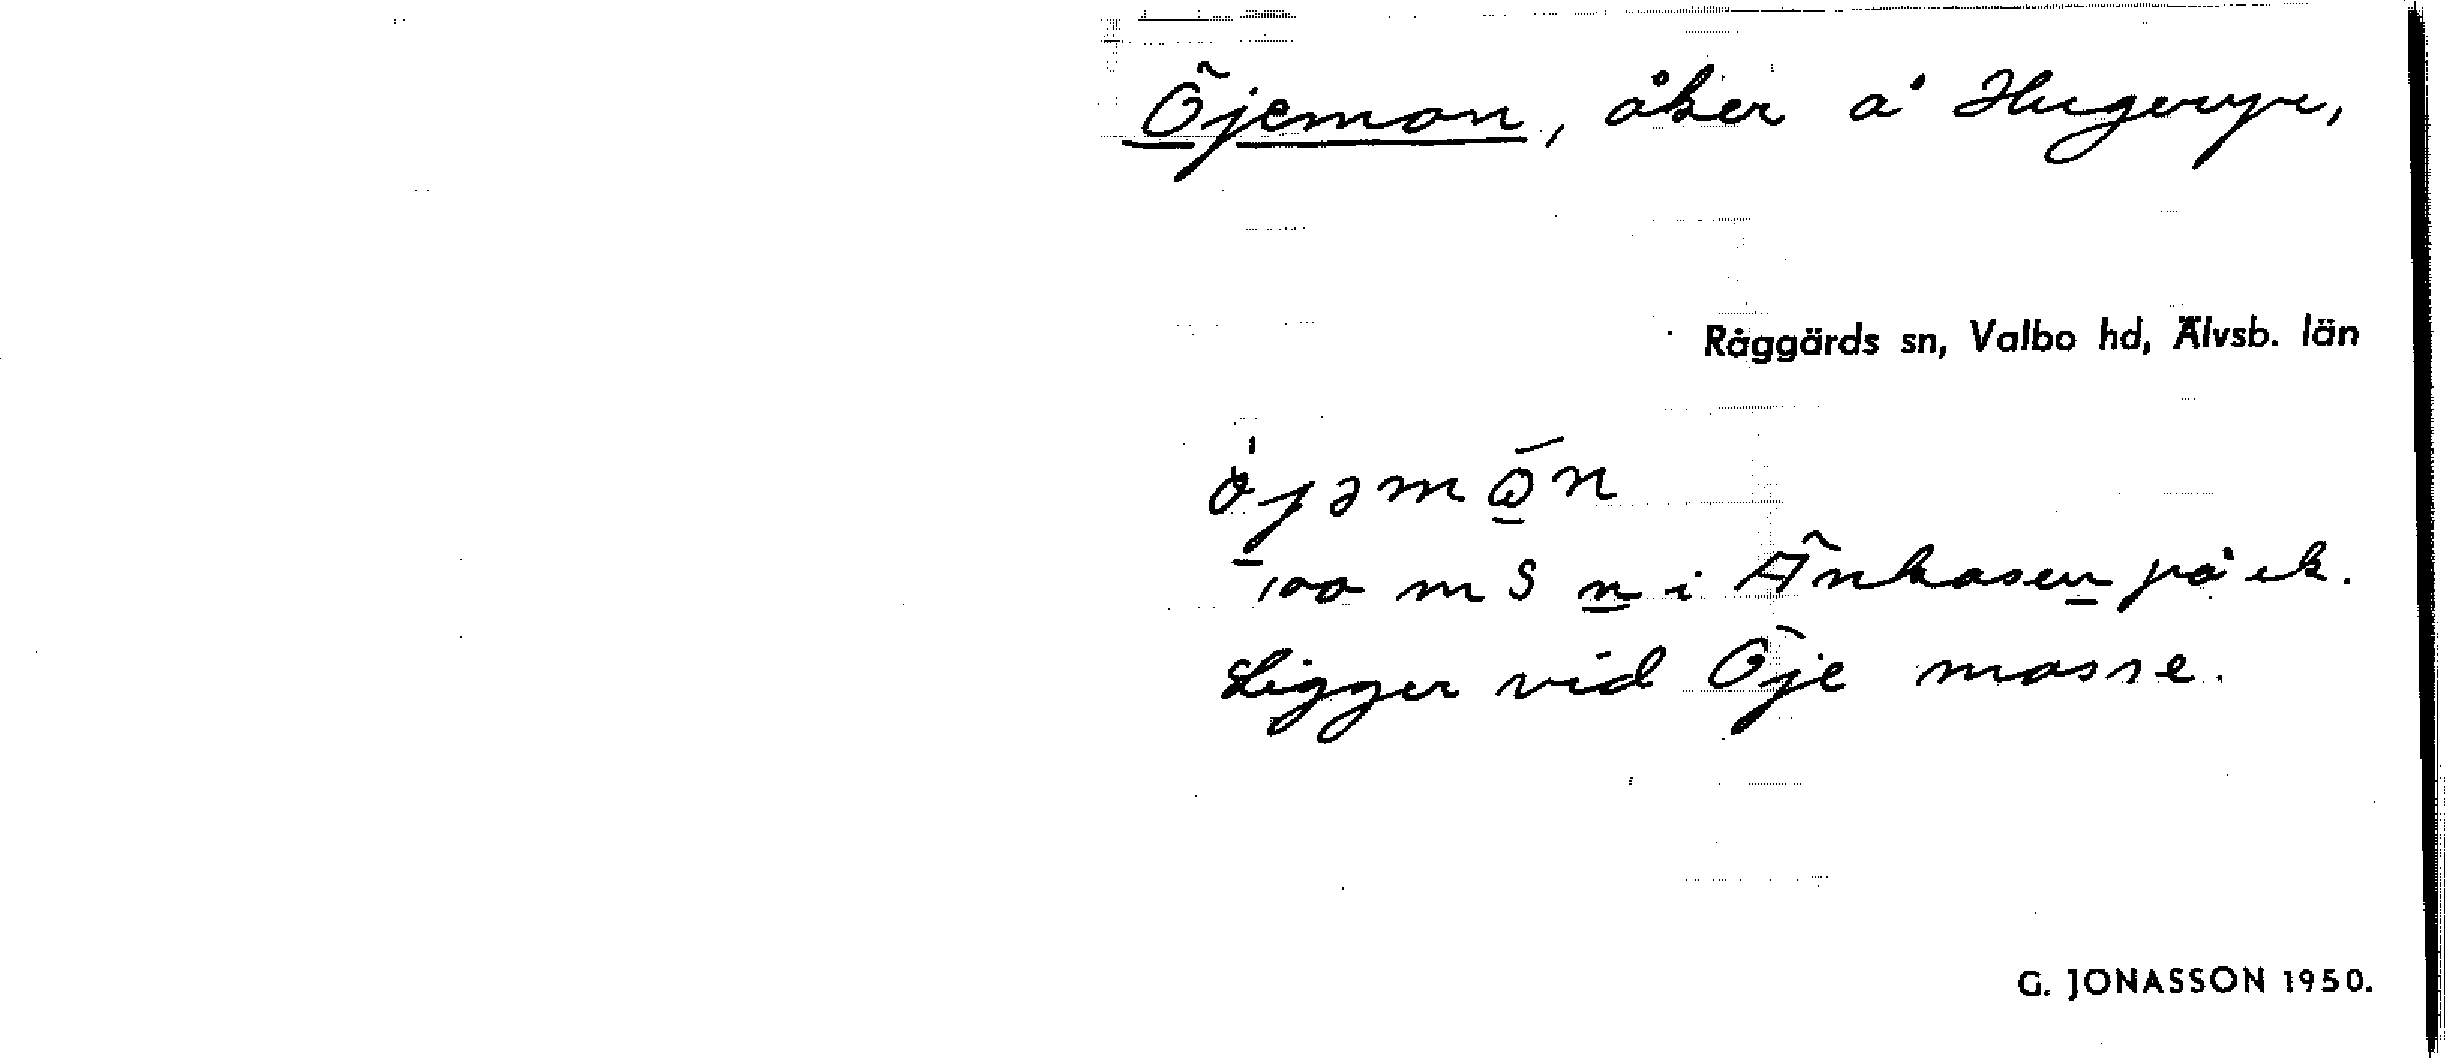 Öjemon, åker å Hugeryr,
Råggärds sn, Valbo hd, Älvsb. län
öjəmǫ́n
100 m S n i Änkasen på ek.
Ligger vid Öje mosse.
G. JONASSON 1950.